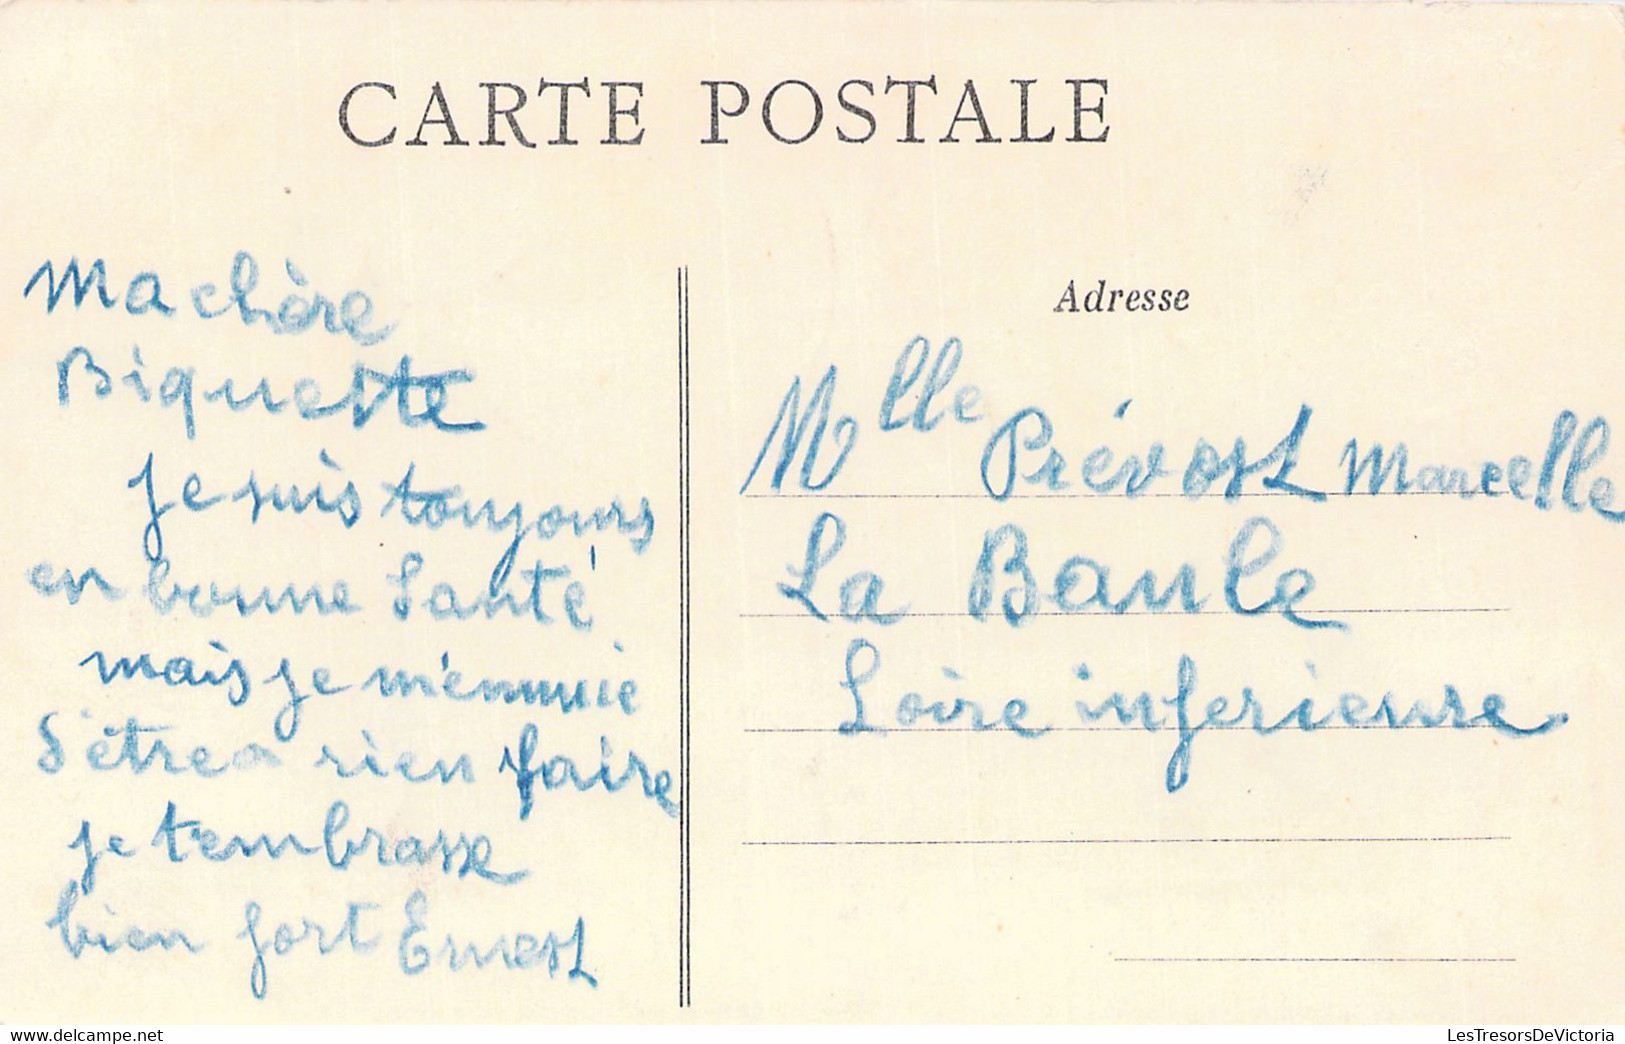 CARTE POSTALE
Ma chère
Biquette
je suis toujours
en bonne Santé
mais je m'ennuie
d'être a rien faire
je t'embrasse
bien fort Ernest
Adresse
Mlle Prévost Marcelle
La Baule
Loire inferieure
LesTresorsDeVictoria